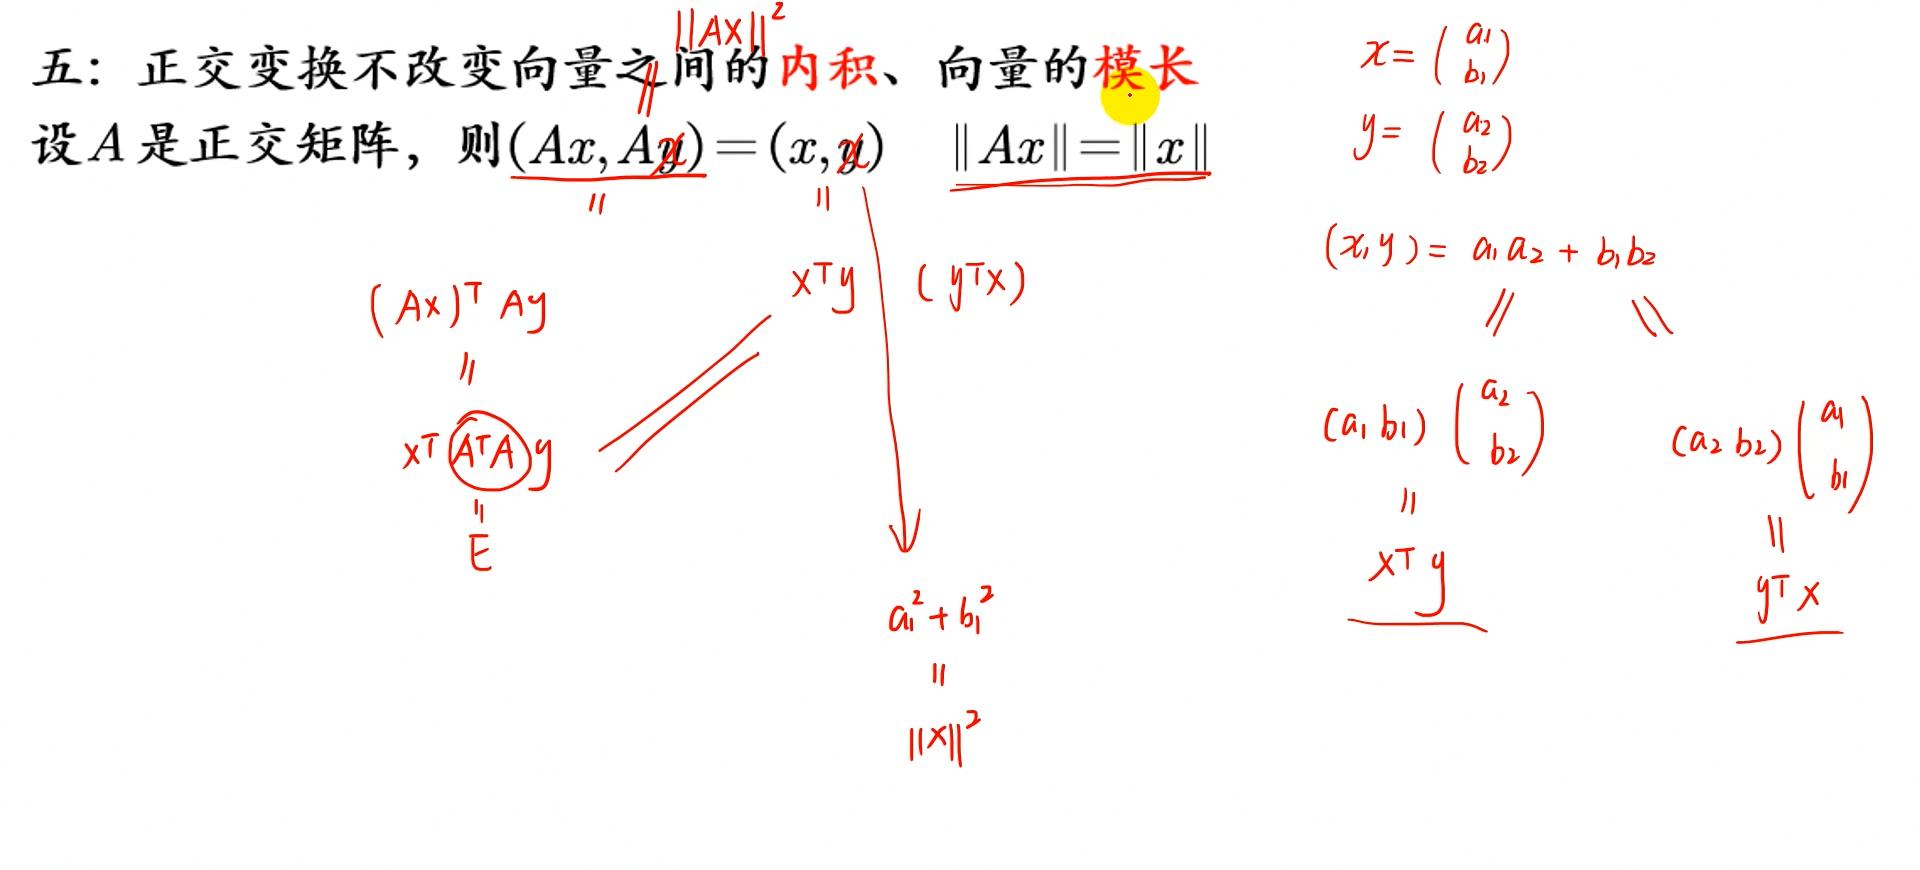 ‖AX‖²
五：正交变换不改变向量之间的内积、向量的模长
设A是正交矩阵，则(Ax, Ax)=(x, x) ‖Ax‖=‖x‖
(Ax)ᵀ Ay
=
xᵀ AᵀA y
=
E
xᵀy (yᵀx)
a₁² + b₁²
=
‖x‖²
x= (a₁ b₁)
y= (a₂ b₂)
(x, y) = a₁a₂ + b₁b₂
(a₁ b₁) (a₂ b₂)
=
xᵀ y
(a₂ b₂) (a₁ b₁)
=
yᵀ x